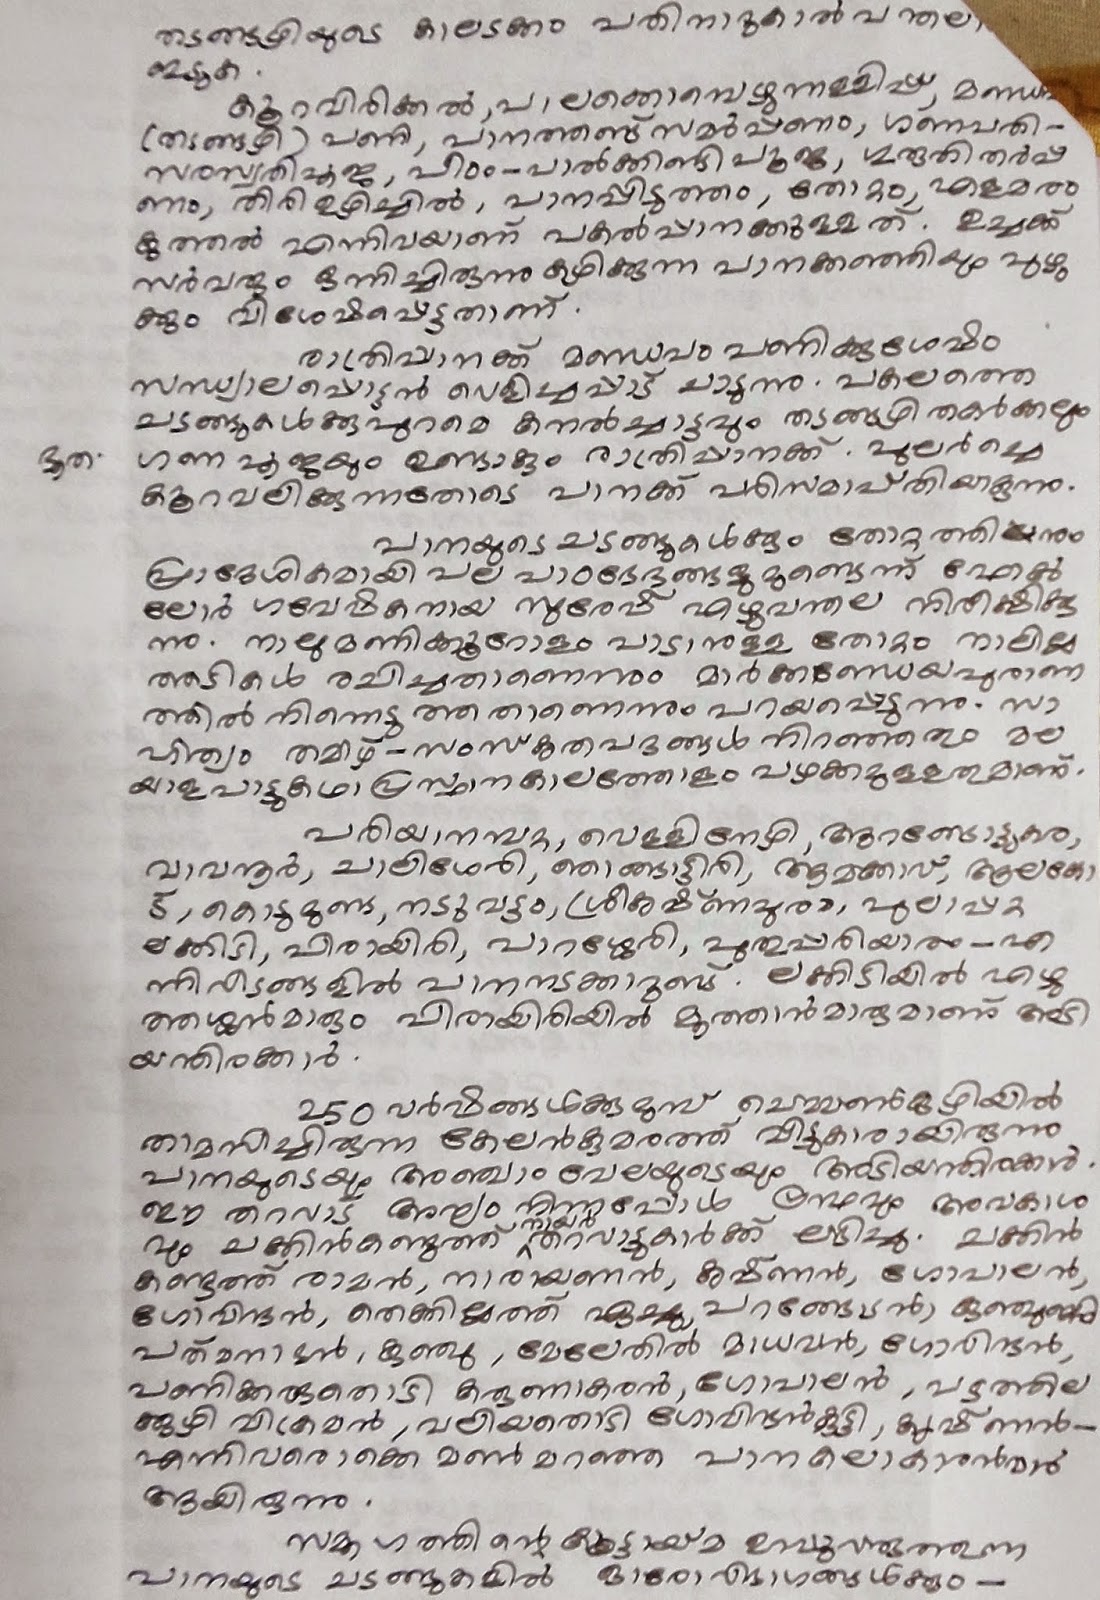 തടങ്ങഴിയുടെ കാലടക്കം പതിനാറുകാൽ പന്തലാ
ഇടുക.
കൂറവിരിക്കൽ, പാലക്കൊമ്പെഴുന്നള്ളിപ്പ്, മണ്ഡപ
(തടങ്ങഴി) പണി, പാനത്തണ്ട് സമർപ്പണം, ഗണപതി-
സരസ്വതിപൂജ, പീഠം-പാൽക്കിണ്ടി പൂജ, ഗുരുതിതർപ്പ
ണം, തിരി ഉഴിച്ചിൽ, പാനപ്പിടുത്തം, തോറ്റം, എളമരം
കുത്തൽ എന്നിവയാണ് പകൽപ്പാനക്കുള്ളത്. ഉച്ചക്ക്
സർവരും ഒന്നിച്ചിരുന്നു കഴിക്കുന്ന പാനക്കഞ്ഞിയും പുഴു
ക്കും വിശേഷപ്പെട്ടതാണ്.
രാത്രിപ്പാനക്ക് മണ്ഡപം പണിക്കുശേഷം
സന്ധ്യാലപ്പൊട്ടൻ വെളിച്ചപ്പാട് ചാടുന്നു. പകലത്തെ
ചടങ്ങുകൾക്കുപുറമെ കനൽച്ചാട്ടവും തടങ്ങഴി തകർക്കലും
ഭൂത. ഗണ പൂജയും ഉണ്ടാകും രാത്രിപ്പാനക്ക്. പുലർച്ചെ
കൂറവലിക്കുന്നതോടെ പാനക്ക് പരിസമാപ്തിയാകുന്നു.
പാനയുടെ ചടങ്ങുകൾക്കും തോറ്റത്തിനും
പ്രാദേശികമായി പല പാഠഭേദങ്ങളുമുണ്ടെന്ന് ഫോക്
ലോർ ഗവേഷകനായ സുരേഷ് എഴുവന്തല നിരീക്ഷിക്കു
ന്നു. നാലുമണിക്കൂറോളം പാടാനുള്ള തോറ്റം നാലില്ല
അടികൾ രചിച്ചതാണെന്നും മാർക്കണ്ഡേയപുരാണ
ത്തിൽ നിന്നെടുത്തതാണെന്നും പറയപ്പെടുന്നു. സാ
ഹിത്യം തമിഴ്-സംസ്കൃതപദങ്ങൾ നിറഞ്ഞതും മല
യാളപാട്ടുകഥാ പ്രസ്ഥാനകാലത്തോളം പഴക്കമുള്ളതുമാണ്.
പരിയാനമ്പറ്റ, വെള്ളിനേഴി, ആറങ്ങോട്ടുകര,
വാവനൂർ, ചാലിശേരി, ഞാങ്ങാട്ടിരി, ആമക്കാവ്, ആലക്കോ
ട്, കൊടുമുണ്ട, നടുവട്ടം, ശ്രീകൃഷ്ണപുരം, പുലാപ്പറ്റ
ലക്കിടി, പിരായിരി, പാറശ്ശേരി, പുതുപ്പരിയാരം-എ
ന്നിവിടങ്ങളിൽ പാനനടക്കാറുണ്ട്. ലക്കിടിയിൽ എഴു
ത്തശ്ശൻമാരും പിരായിരിയിൽ മൂത്താൻമാരുമാണ് അടി
യന്തിരക്കാർ.
250 വർഷങ്ങൾക്കുമുമ്പ് ചെമ്മൺകുഴിയിൽ
താമസിച്ചിരുന്ന കേലൻകുമരത്ത് വീട്ടുകാരായിരുന്നു
പാനയുടെയും അഞ്ചാം വേലയുടെയും അടിയന്തിരക്കാർ.
ഈ തറവാട് അന്യം നിന്നപ്പോൾ ഗ്രന്ഥവും അവകാശ
വും ചക്കിൻകണ്ടത്ത് നായർ തറവാട്ടുകാർക്ക് ലഭിച്ചു. ചക്കിൻ
കണ്ടത്ത് രാമൻ, നാരായണൻ, കൃഷ്ണൻ, ഗോപാലൻ,
ഗോവിന്ദൻ, തെക്കില്ലത്ത് ഏച്ചു, പറങ്ങോടൻ, കുഞ്ചുണ്ണി
പത്മനാഭൻ, കുഞ്ചു, മേലേതിൽ മാധവൻ, ഗോവിന്ദൻ,
പണിക്കരുതൊടി കരുണാകരൻ, ഗോപാലൻ, പട്ടത്തില
ക്കുഴി വിക്രമൻ, വലിയതൊടി ഗോവിന്ദൻകുട്ടി, കൃഷ്ണൻ-
എന്നിവരൊക്കെ മൺമറഞ്ഞ പാനകലാകാരൻമാർ
ആയിരുന്നു.
സമൂഹത്തിന്റെ കൂട്ടായ്മ ഉറപ്പുവരുത്തുന്ന
പാനയുടെ ചടങ്ങുകളിൽ ഓരോ വിഭാഗങ്ങൾക്കും-